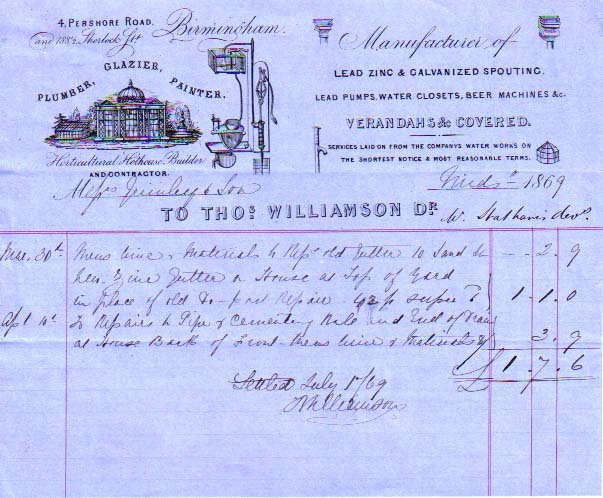 4, PERSHORE ROAD.
and 188½ Sherlock St.
Birmingham.
PLUMBER, GLAZIER, PAINTER,
Horticultural Hothouse Builder
AND CONTRACTOR.
Manufacturer of
LEAD ZINC & GALVANIZED SPOUTING.
LEAD PUMPS, WATER CLOSETS, BEER MACHINES &c.
VERANDAHS &c COVERED.
SERVICES LAID ON FROM THE COMPANYS WATER WORKS ON
THE SHORTEST NOTICE & MOST REASONABLE TERMS.
Messrs Grimley & Son
1869
TO THOS WILLIAMSON DR
30th Mens time & Materials to Repr old Gutter to
New Zine Gutter on House at Top of Yard
in place of old Do - part Repair super
2 . 9
1 . 1 . 0
Apl To Repairs to Pipe & Cementing Hole and End of Drain
at House Back of Front Mens time & Materials
3 . 9
£ 1 . 7 . 6
Settled July 1/69
Williamson